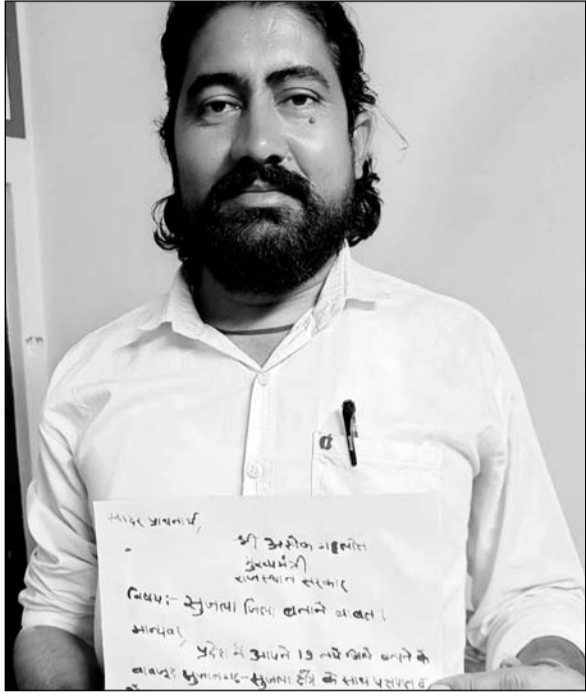 सादर प्रार्थनार्थ,
श्री अशोक गहलोत
मुख्यमंत्री
राजस्थान सरकार
विषय:- सुजला जिला बनाने बाबत।
मान्यवर,
प्रदेश में आपने 19 नये जिले बनाने के
बावजूद सुजानगढ-सुजला क्षेत्र के साथ पक्षपात व